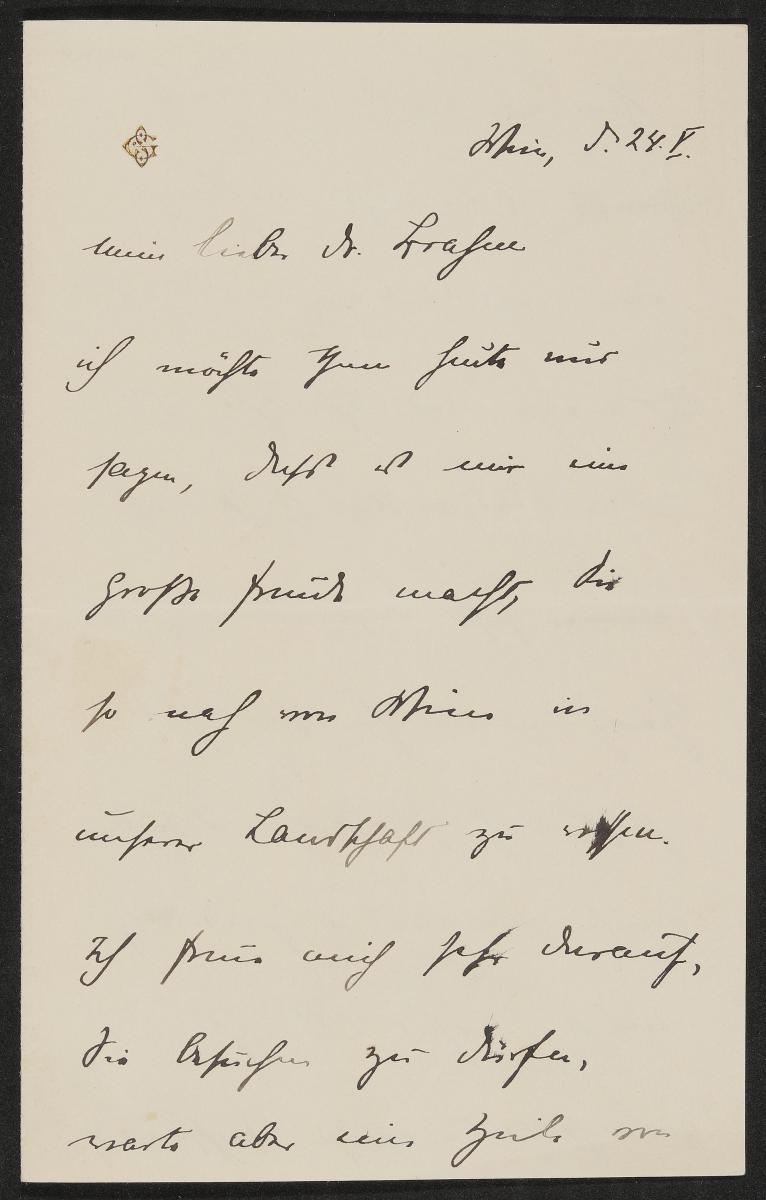 Wien, d. 24. V.
mein lieber Dr. Brahm
ich möchte Ihnen heute nur
sagen, dass es mir eine
große Freude macht, Sie
so nah von Wien in
unserer Landschaft zu wissen.
Ich freue mich sehr darauf,
Sie besuchen zu dürfen,
warte aber eine Zeile von